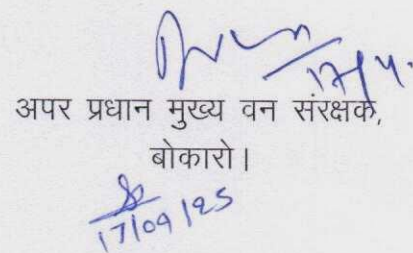 17/4.
अपर प्रधान मुख्य वन संरक्षक,
बोकारो।
17/09/25